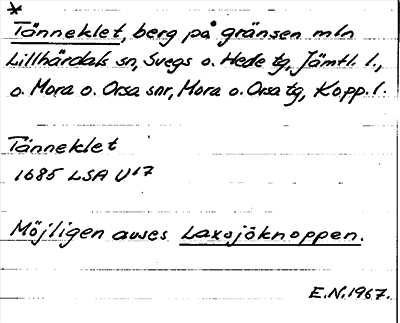 *
Tänneklet, berg på gränsen mln
Lillhärdals sn, Svegs o. Hede tg, Jämtl. l.,
o. Mora o. Orsa snr, Mora o. Orsa tg, Kopp. l.
Tänneklet
1685 LSA U17
Möjligen avses Laxsjöknoppen.
E.N. 1967.